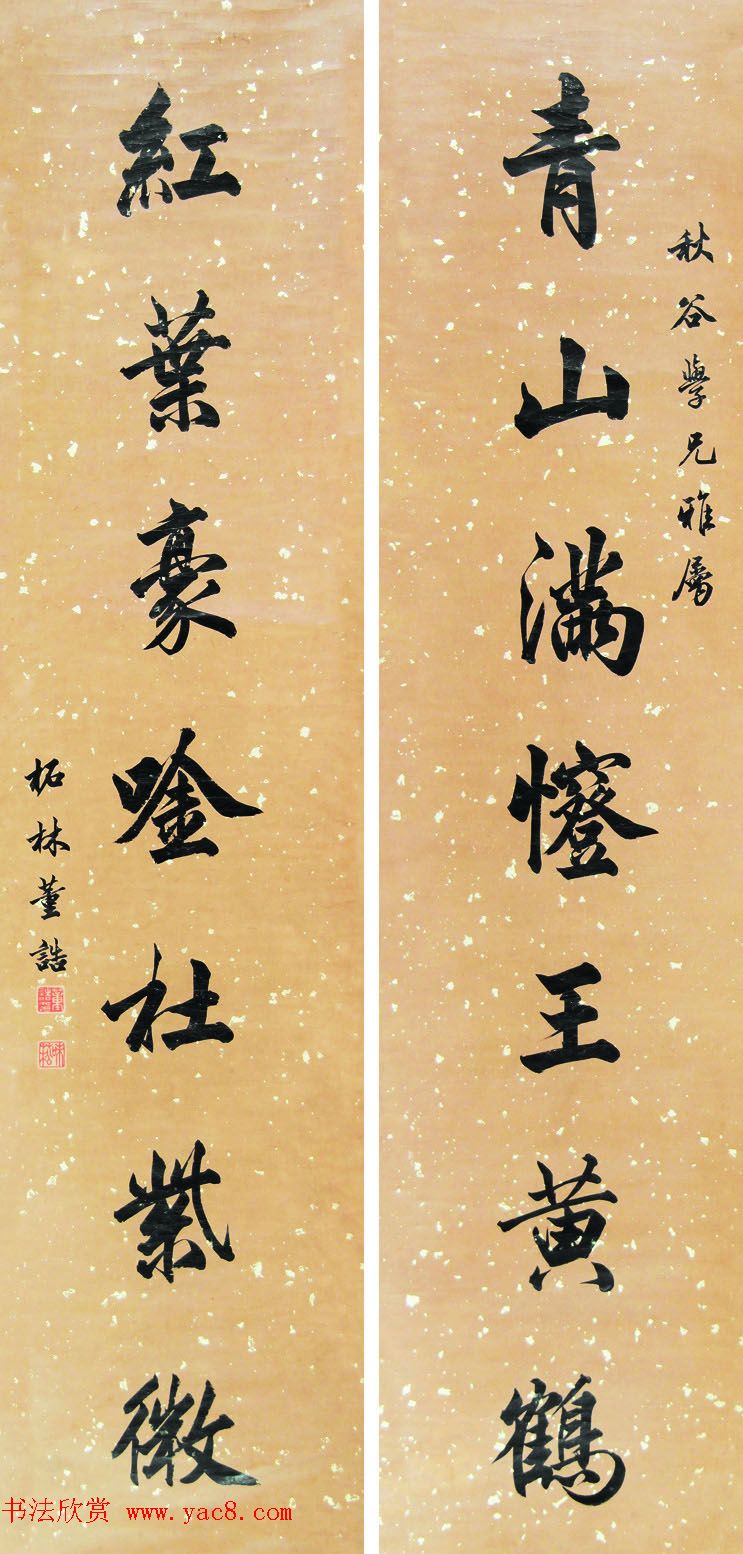 秋谷學兄雅屬
青山滿王黃鶴
紅葉豪唫杜紫微
柘林董誥
书法欣赏 www.yac8.com